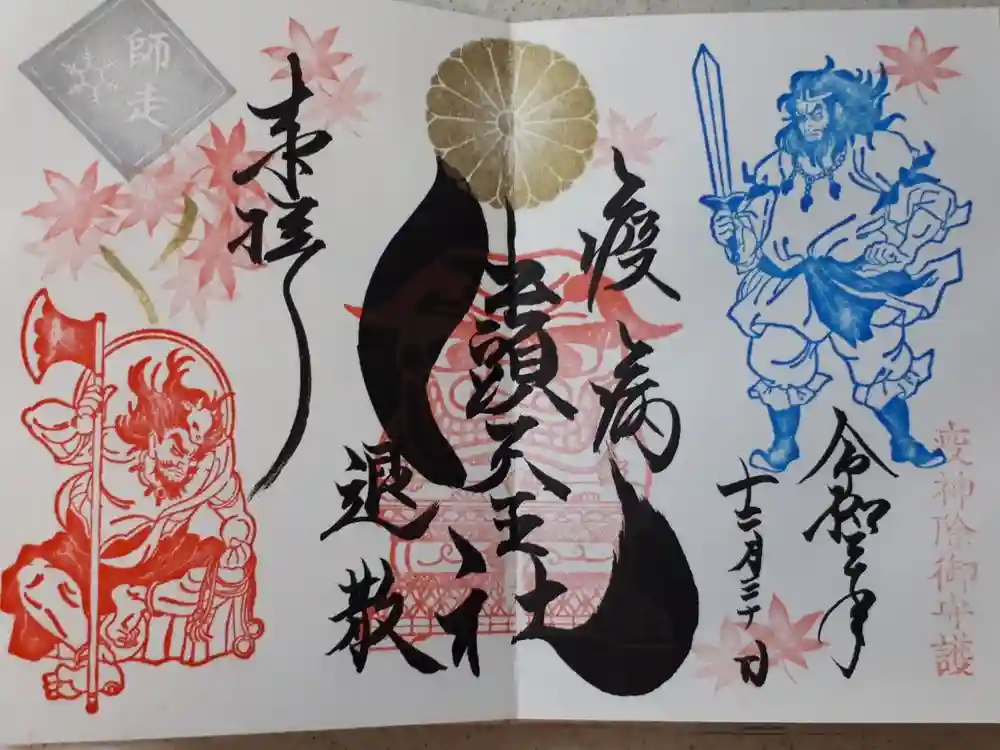 疫神除御守護
令和三年
十二月三十日
疫病
牛頭天王社
退散
奉拝
師走